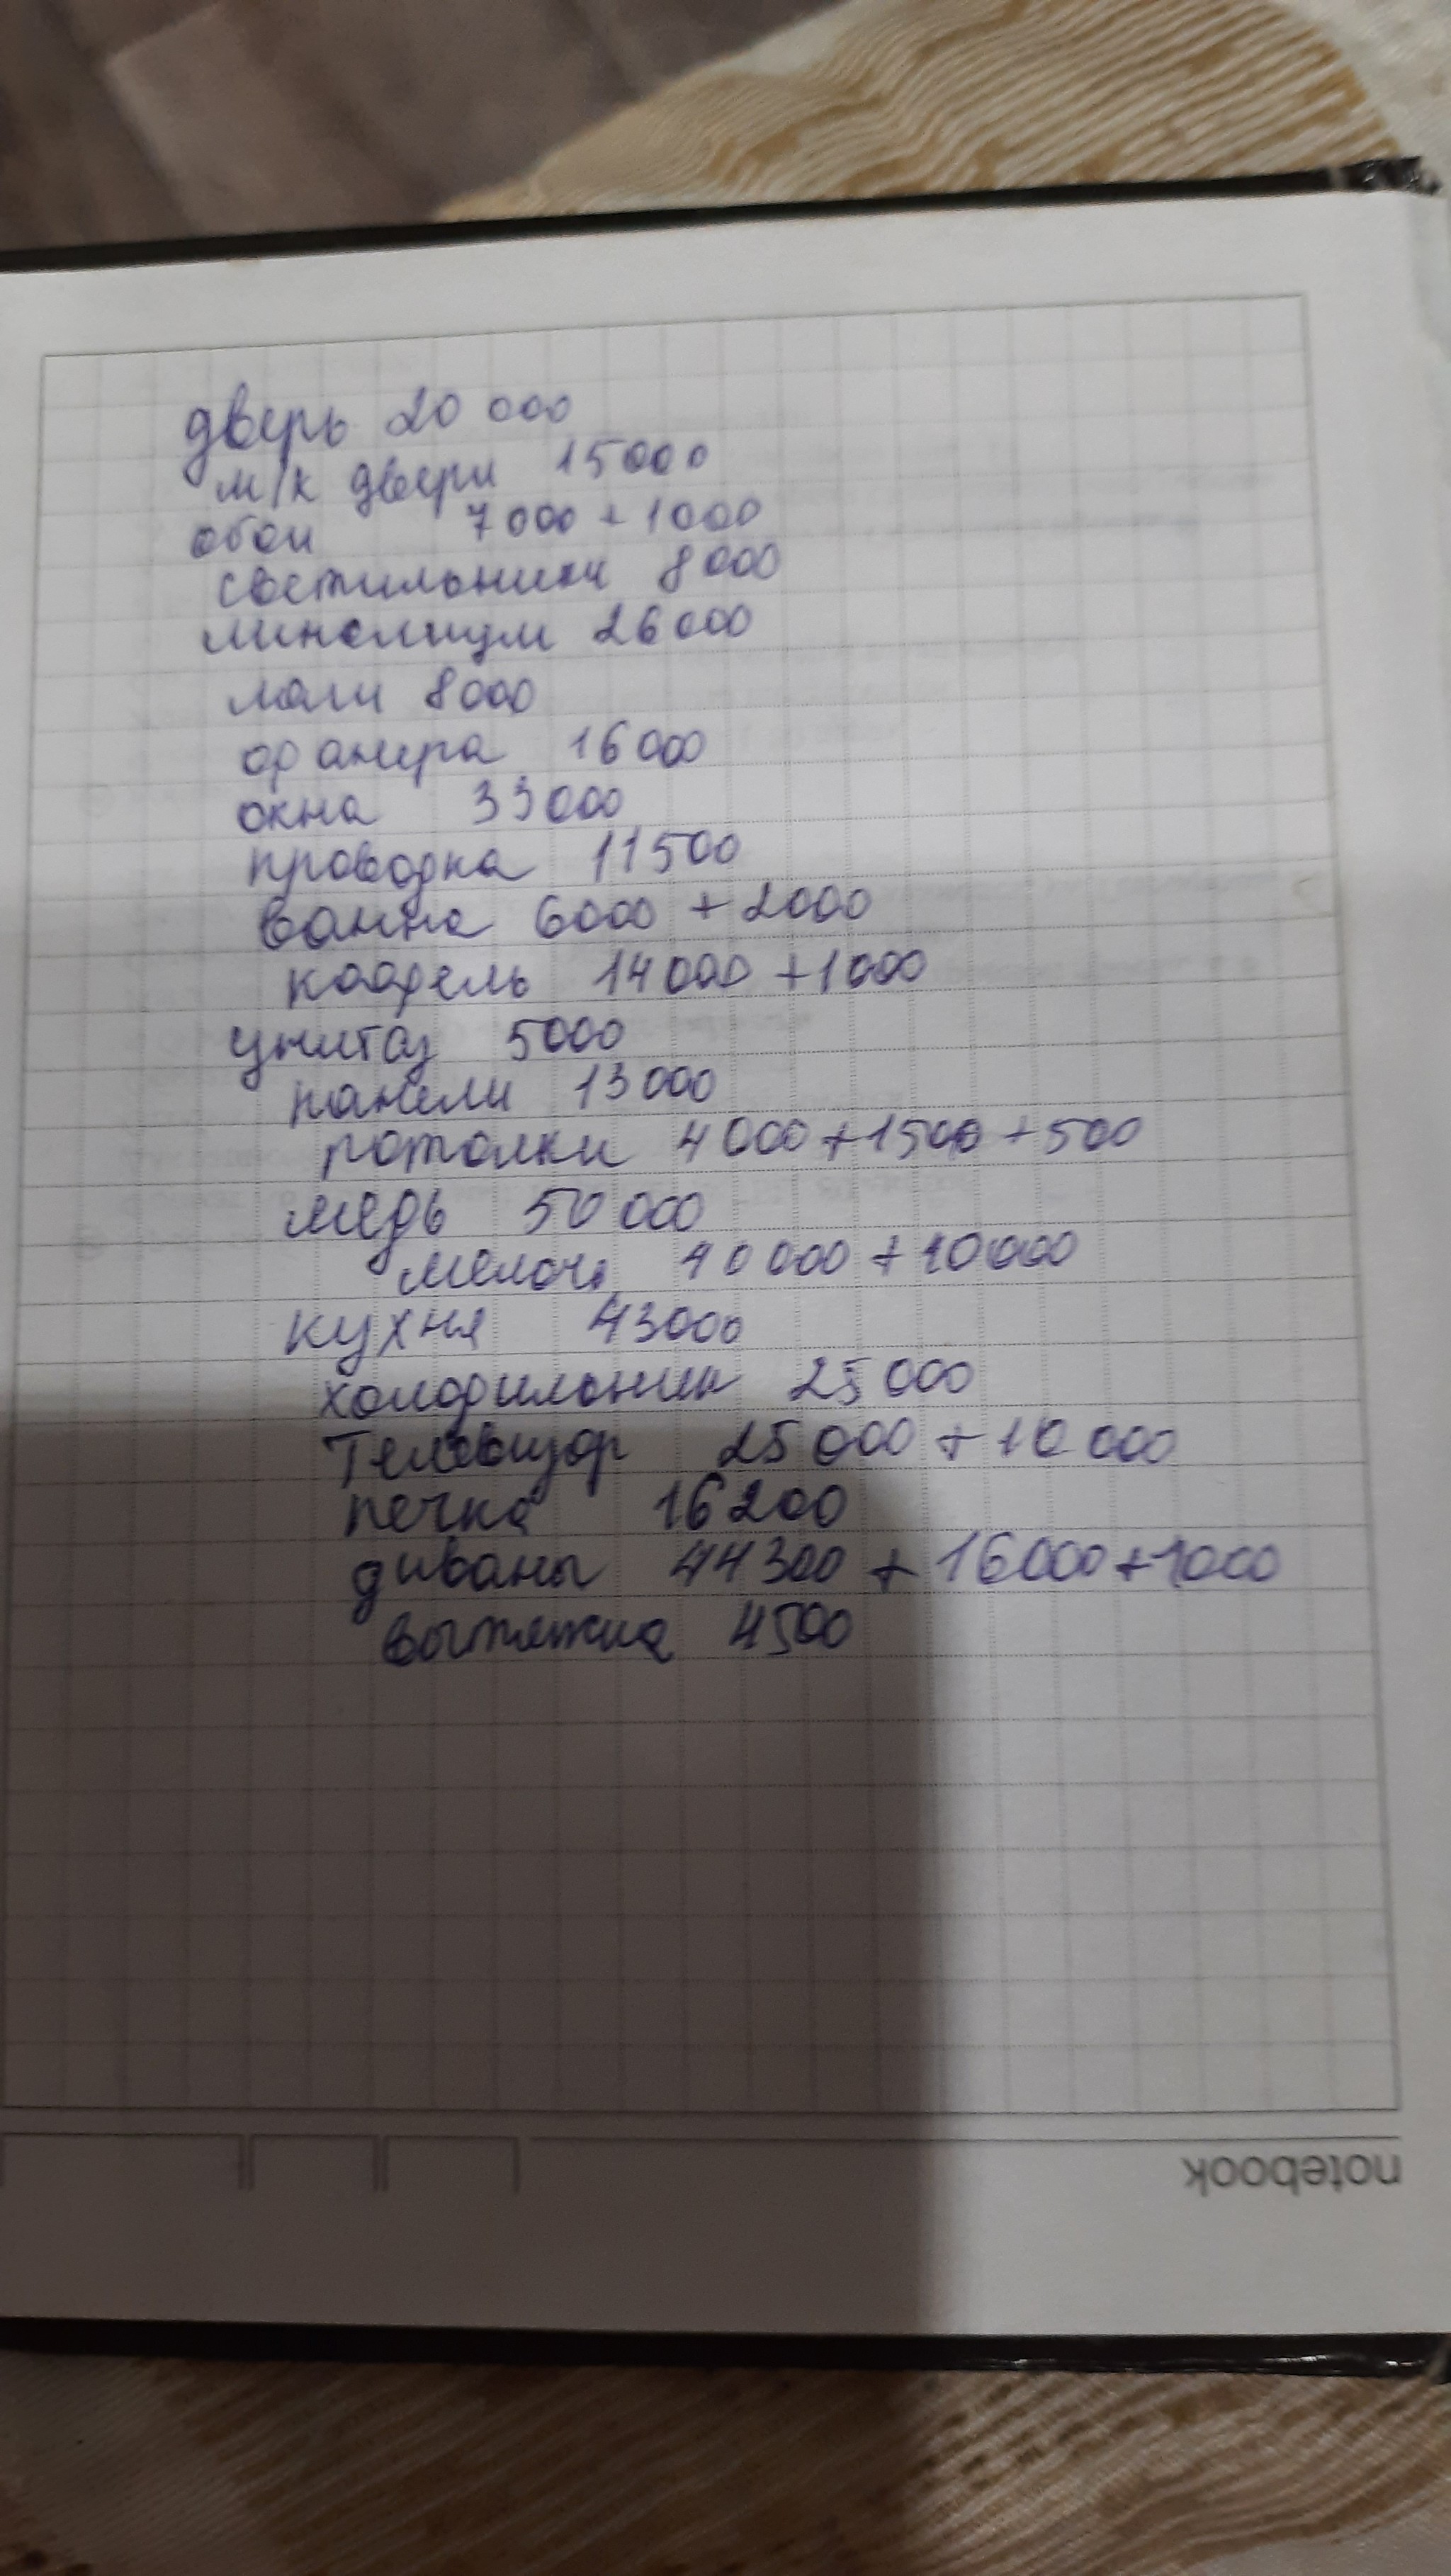 дверь 20 000
м/к двери 15000
обои 7000 + 1000
светильники 8000
линолиум 26000
лаги 8000
фанера 16000
окна 33000
проводка 11500
ванна 6000 + 2000
каафель 14000 + 1000
унитаз 5000
панели 13000
потолки 4000 + 1500 + 500
медь 50 000
мелочь 40 000 + 10 000
кухня 43000
холодильник 25 000
Телевизор 25 000 + 10 000
печка 16200
диваны 44300 + 16000 + 1000
вытяжка 4500
notebook